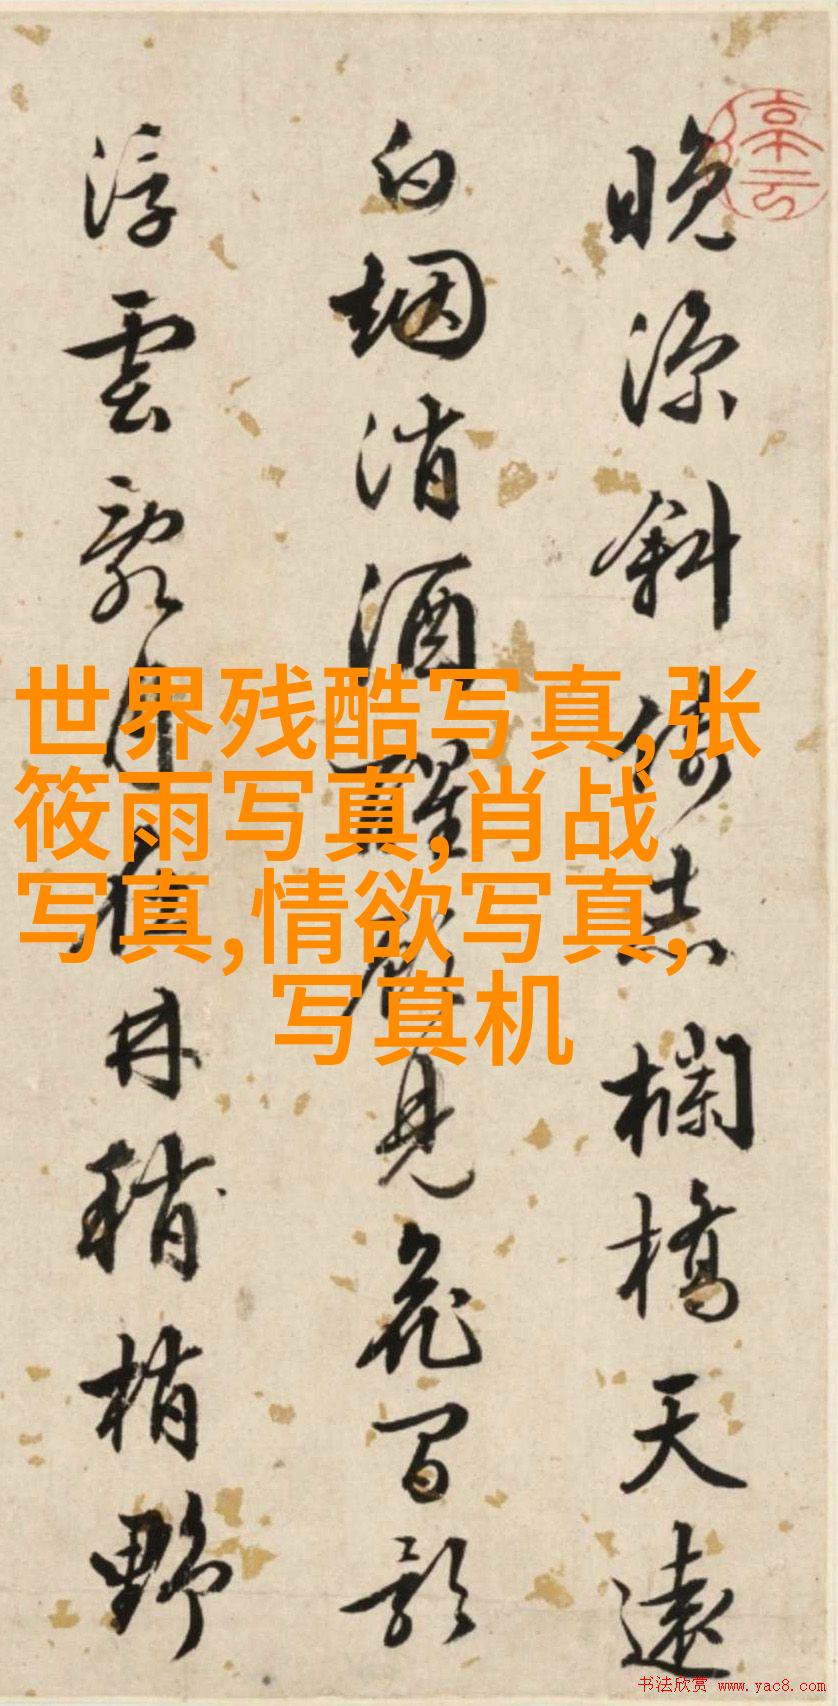 晚涼斜倚赤欄橋天遠
白烟消酒醒見花間影
浮雲野
世界残酷写真,张
筱雨写真,肖战
写真,情欲写真,
写真机
书法欣赏 www.yac8.com